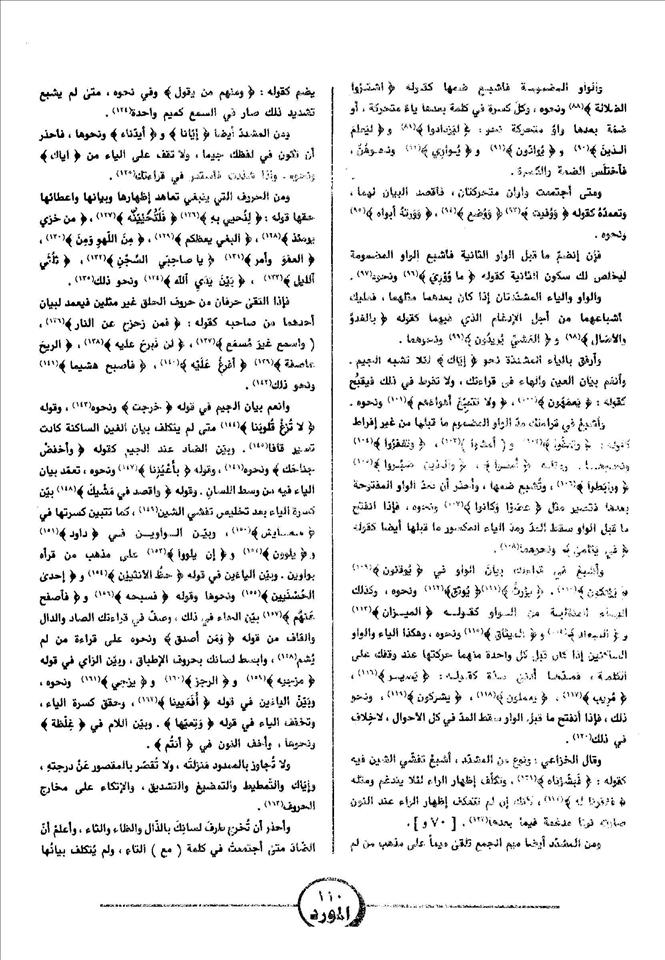 والواو المضمومة فأشبع ضمها كقوله ﴿ اشتروا
الضلالة ﴾(٨٨) ونحوه ، وكل كسرة في كلمة بعدها ياء متحركة ، أو
ضمة بعدها واو متحركة نحو : ﴿ ليزدادوا ﴾(٨٩) و ﴿ ليعلم
الذين ﴾(٩٠) و ﴿ يوادّون ﴾(٩١) و ﴿ يُواري ﴾(٩٢) ونحوهن ،
فاختلس الضمة والكسرة .
ومتى أجتمعت واوان متحركتان ، فاقصد البيان لهما ،
وتعمدْهُ كقوله ﴿ وَوُفيت ﴾(٩٣) ﴿ وَوُضع ﴾(٩٤) ، ﴿ وَوَرِثهُ أبواه ﴾(٩٥)
ونحوه .
فإن إنضمّ ما قبل الواو الثانية فأشبع الواو المضمومة
ليخلص لك سكون الثانية كقوله ﴿ ما وُوْرِيَ ﴾(٩٦) ونحوه(٩٧) .
والواو والياء المشددتان إذا كان بعدهما مثلهما ، فعليك
اشباعهما من أجل الإدغام الذي فيهما كقوله ﴿ بالغدوّ
والآصال ﴾(٩٨) و ﴿ العشيّ يُريدون ﴾(٩٩) ونحوهما .
وأرفق بالياء المشددة نحو ﴿ إيّاك ﴾ لئلا تشبه الجيم .
وأنعم بيان العين والهاء في قراءتك ، ولا تفرط في ذلك فيقبُح
كقوله : ﴿ يعمهون ﴾(١٠٠) ، ﴿ ولا تتّبِعْ أهواءهم ﴾(١٠١) ونحوه .
وأشبع في قراءتك مدّ الواو المضموم ما قبلها من غير إفراط
كقوله : ﴿ ﴾ و ( آمنوا )(١٠٢) ، ﴿ وتكفروا ﴾(١٠٤)
﴿ اصبروا ﴾ ، ﴿ والذين صبروا ﴾(١٠٥)
﴿ ورابطوا ﴾(١٠٦) ، وتُشبع ضمها ، وأحذر أن تمدّ الواو المفتوحة
بعدها فتصير مثل ﴿ عصَوْا وكانوا ﴾(١٠٧) ونحوه ، فإذا انفتح
ما قبل الواو سقط المدّ ومدّ الياء المكسور ما قبلها أيضا كقوله
﴿ في يتامى ﴾ ونحوهما(١٠٨) .
وأشبع في قراءتك بيان الواو في ﴿ يُوقنون ﴾(١٠٩)
﴿ ﴾(١١٠) ، ﴿ يورث ﴾(١١١) ﴿ يُوثق ﴾(١١٢) ونحوه ، وكذلك
الياء المنقلبة من الواو كقوله ﴿ الميزان ﴾(١١٣)
و ﴿ الميعاد ﴾ و ﴿ الميثاق ﴾(١١٥) ونحوه ، وهكذا الياء والواو
الساكنين إذا كان قبل كل واحدة منهما حركتها عند وقفك على
الكلمة ، فمدّهما أدنى مدة كقوله : ﴿ يسير ﴾(١١٦) ،
﴿ مُريب ﴾(١١٧) ، ﴿ يعملون ﴾(١١٨) ، ﴿ يشركون ﴾(١١٩) ، ونحو
ذلك ، فإذا أنفتح ما قبل الواو سقط المدّ في كل الأحوال ، لاخلاف
في ذلك(١٢٠) .
وقال الخزاعي : ونوع من المشدد ، أشبع تفشّي الشين فيه
كقوله : ﴿ فبشّرناه ﴾(١٢١) ، وتكلّف إظهار الراء لئلا يندغم ومثله
، لأنك إن لم تتكلف إظهار الراء عند النون
صارت نونا مدغمة فيما بعدها(١٢٣) . [ ٧٠ و ] .
ومن المشدد أيضا ميم الجمع تلقى ميماً على مذهب من لم
يضم كقوله : ﴿ ومنهم من يقول ﴾ وفي نحوه ، متى لم يشبع
تشديد ذلك صار في السمع كميم واحدة(١٢٤) .
ومن المشدد أيضا ﴿ إيّانا ﴾ و ﴿ أيدناه ﴾ ونحوها ، فاحذر
أن تكون في لفظك جيما ، ولا تقف على الياء من ﴿ اياك ﴾
في قراءتك(١٢٥) .
ومن الحروف التي ينبغي تعاهد إظهارها وبيانها واعطائها
حقها قوله : ﴿ لِنُحيي به ﴾(١٢٦) ، ﴿ فَلَنُحْيِيَنَّه ﴾(١٢٧) ، ﴿ من خزي
يومئذ ﴾(١٢٨) ، ﴿ البغي يعظكم ﴾(١٢٩) ، ﴿ مِنَ اللهو ومِنَ ﴾(١٣٠) ،
﴿ العفوَ وأمر ﴾(١٣١) ، ﴿ يا صاحبي السِّجْنِ ﴾(١٣٢) ، ﴿
الليل ﴾(١٣٣) ، ﴿ بَيْنَ يَدَي ألله ﴾(١٣٤) ونحو ذلك(١٣٥) .
فإذا التقى حرفان من حروف الحلق غير مثلين فيعمد لبيان
أحدهما من صاحبه كقوله : ﴿ فمن زحزح عن النار ﴾(١٣٦) ،
( واسمع غيرَ مُسمَعٍ )(١٣٧) ، ﴿ لن نبرحَ عليه ﴾(١٣٨) ، ﴿ الريحَ
عاصفة ﴾(١٣٩) ﴿ أفرِغْ عَلَيْهِ ﴾(١٤٠) ، ﴿ فأصبح هشيما ﴾(١٤١)
ونحو ذلك(١٤٢) .
وانعم بيان الجيم في قوله ﴿ خرجت ﴾ ونحوه(١٤٣) ، وقوله
﴿ لا تُزِغْ قُلوبَنا ﴾(١٤٤) متى لم يتكلف بيان الغين الساكنة كادت
تصير قافا(١٤٥) . وبيّن الضاد عند الجيم كقوله ﴿ وأخفضْ
جناحك ﴾ ونحوه(١٤٦) ، وقوله ﴿ بأعْيُنِنا ﴾(١٤٧) ونحوه ، تعمّد بيان
الياء فيه من وسط اللسان . وقوله ﴿ واقصد في مَشْيِكَ ﴾(١٤٨) بيّن
كسرة الياء بعد تخليص تفشي الشين(١٤٩) ، كما تتبين كسرتها في
﴿ معايش ﴾(١٥٠) ، وبيّن الواوين في ﴿ داود ﴾(١٥١)
و ﴿ يلوون ﴾(١٥٢) و ﴿ إن يلووا ﴾(١٥٣) على مذهب من قرأه
بواوين . وبيّن الياءين في قوله ﴿ حظُّ الأنثيَيْنِ ﴾(١٥٤) و ﴿ إحدى
الحُسْنَيَيْنِ ﴾(١٥٥) ونحوها وقوله ﴿ فسبحه ﴾(١٥٦) و ﴿ فآصفح
عَنْهُم ﴾(١٥٧) بيّن الحاء في ذلك ، وصفّ في قراءتك الصاد والدال
والقاف من قوله ﴿ وَمَن أصدق ﴾ ونحوه على قراءة من لم
يُشم(١٥٨) ، وابسط لسانك بحروف الإطباق ، وبيّن الزاي في قوله
﴿ مزجيه ﴾(١٥٩) و ﴿ الرجز ﴾(١٦٠) و ﴿ يزجي ﴾(١٦١) ونحوه ،
وبيّنْ الياءين في قوله ﴿ أفَعَيِينا ﴾(١٦٢) ، وحقق كسرة الياء ،
وتخفف الياء في قوله ﴿ وَتَعِيَها ﴾ . وبيّن اللام في ﴿ غِلْظَة ﴾
ونحوها ، وأخف النون في ﴿ أنتُم ﴾ .
ولا تُجاوز بالممدود منزلتَه ، ولا تُقصّر بالمقصور عَنْ درجته ،
وإيّاك والتمطيط والتمضيغ والتشديق ، والإتكاء على مخارج
الحروف(١٦٣) .
وأحذر أن تُخرج طرف لسانك بالذّال والظاء والثاء ، وأعلمْ أنّ
الضادَ متى أجتمعتْ في كلمة ( مع ) التاء ، ولم يُتكلف بيانُها
١١٠
المورد